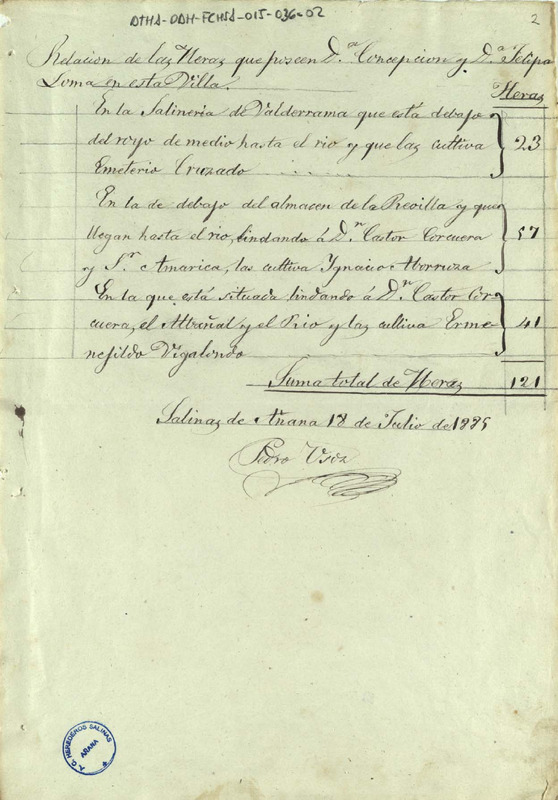 ATHA-DAH-FCHSA-015-036-02
2
Relacion de las Heras que poseen D.ª Concepcion y D.ª Felipa
Loma en esta Villa.
Heras
En la Salineria de Valderrama que está debajo
del royo de medio hasta el rio y que las cultiva 23
Emeterio Cruzado
En la de debajo del almacen de la Revilla y que
llegan hasta el rio, lindando á D.n Castor Corcuera 57
y S.r Amarica, las cultiva Ygnacio
En la que está situada lindando á D.n Castor Cor
cuera, el Albañal y el Rio y las cultiva Erme 41
nejildo Vigalondo
Suma total de Heras 121
Salinas de Añana 18 de Julio de
Pedro
A.G. HEREDEROS SALINAS
AÑANA